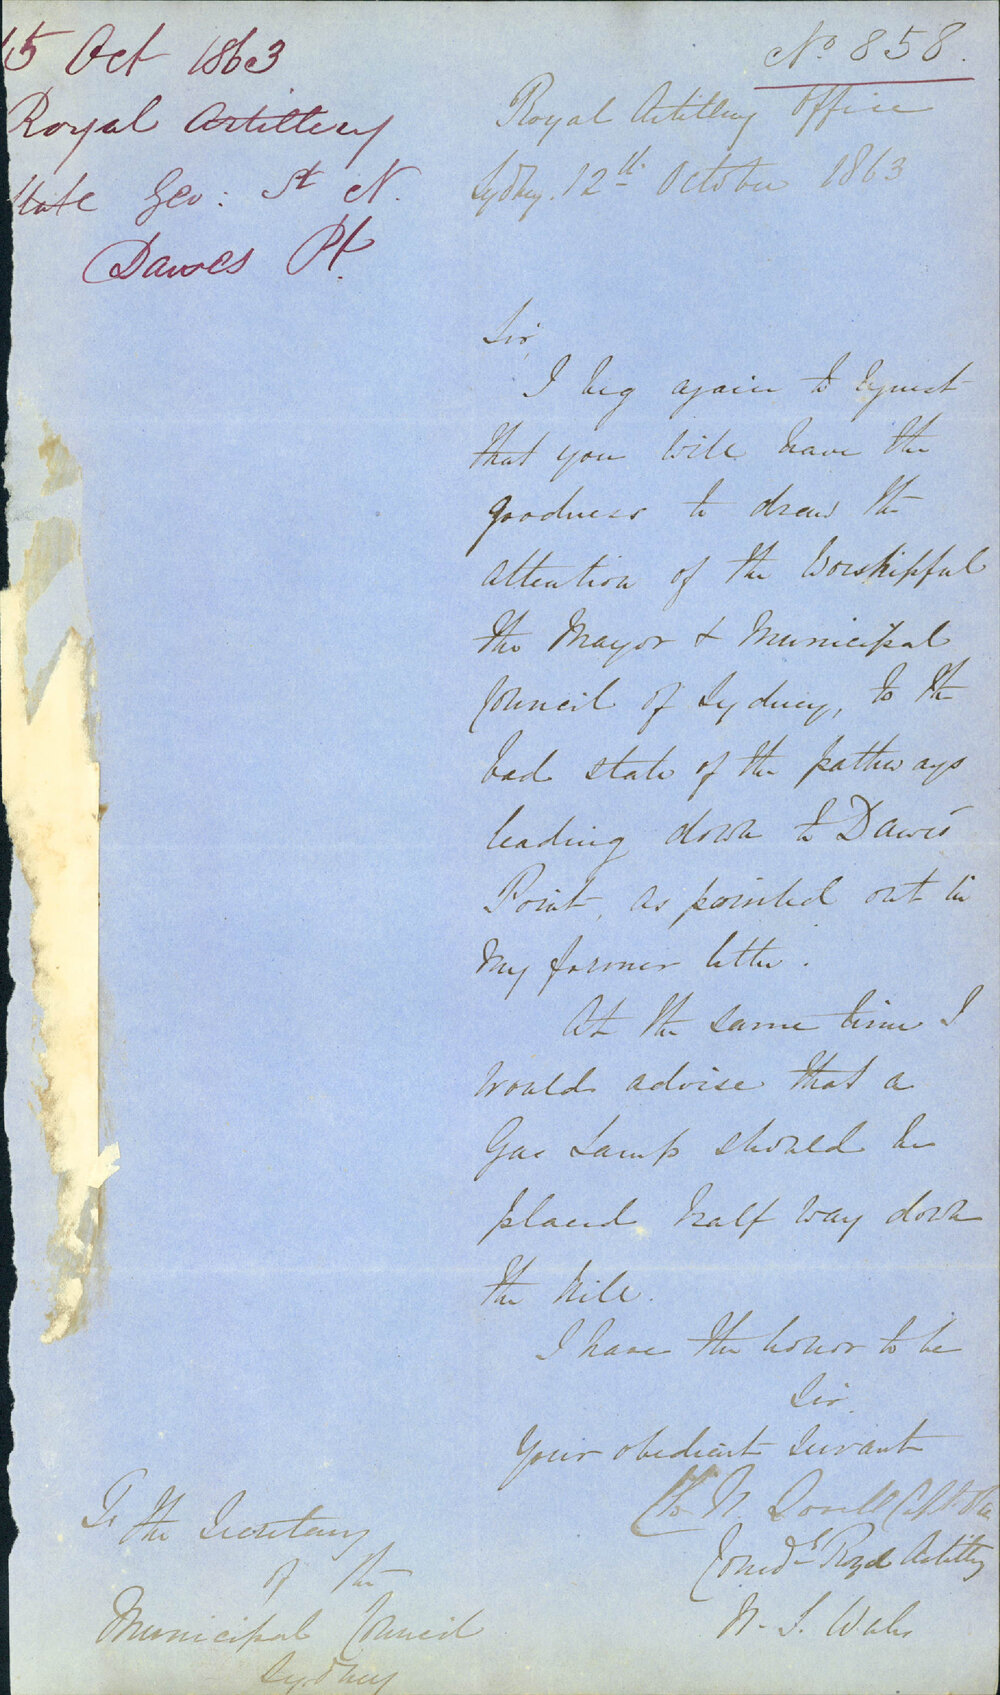 15 Oct 1863
Royal Artillery
State Geo: St N.
Dawes Pt.
No 858.
Royal Artillery Office
Sydney. 12th October 1863
Sir,
I beg again to request
that you will have the
goodness to draw the
attention of the Worshipful
the Mayor & Municipal
Council of Sydney, to the
bad state of the pathways
leading down to Dawes
Point, as pointed out in
my former letter.
At the same time I
would advise that a
Gas Lamp should be
placed half way down
the hill.
I have the honor to be
Sir.
Your obedient servant
N. Lovell Capt. RA
Comdg Royal Artillery
N. S. Wales
To the Secretary
of the
Municipal Council
Sydney